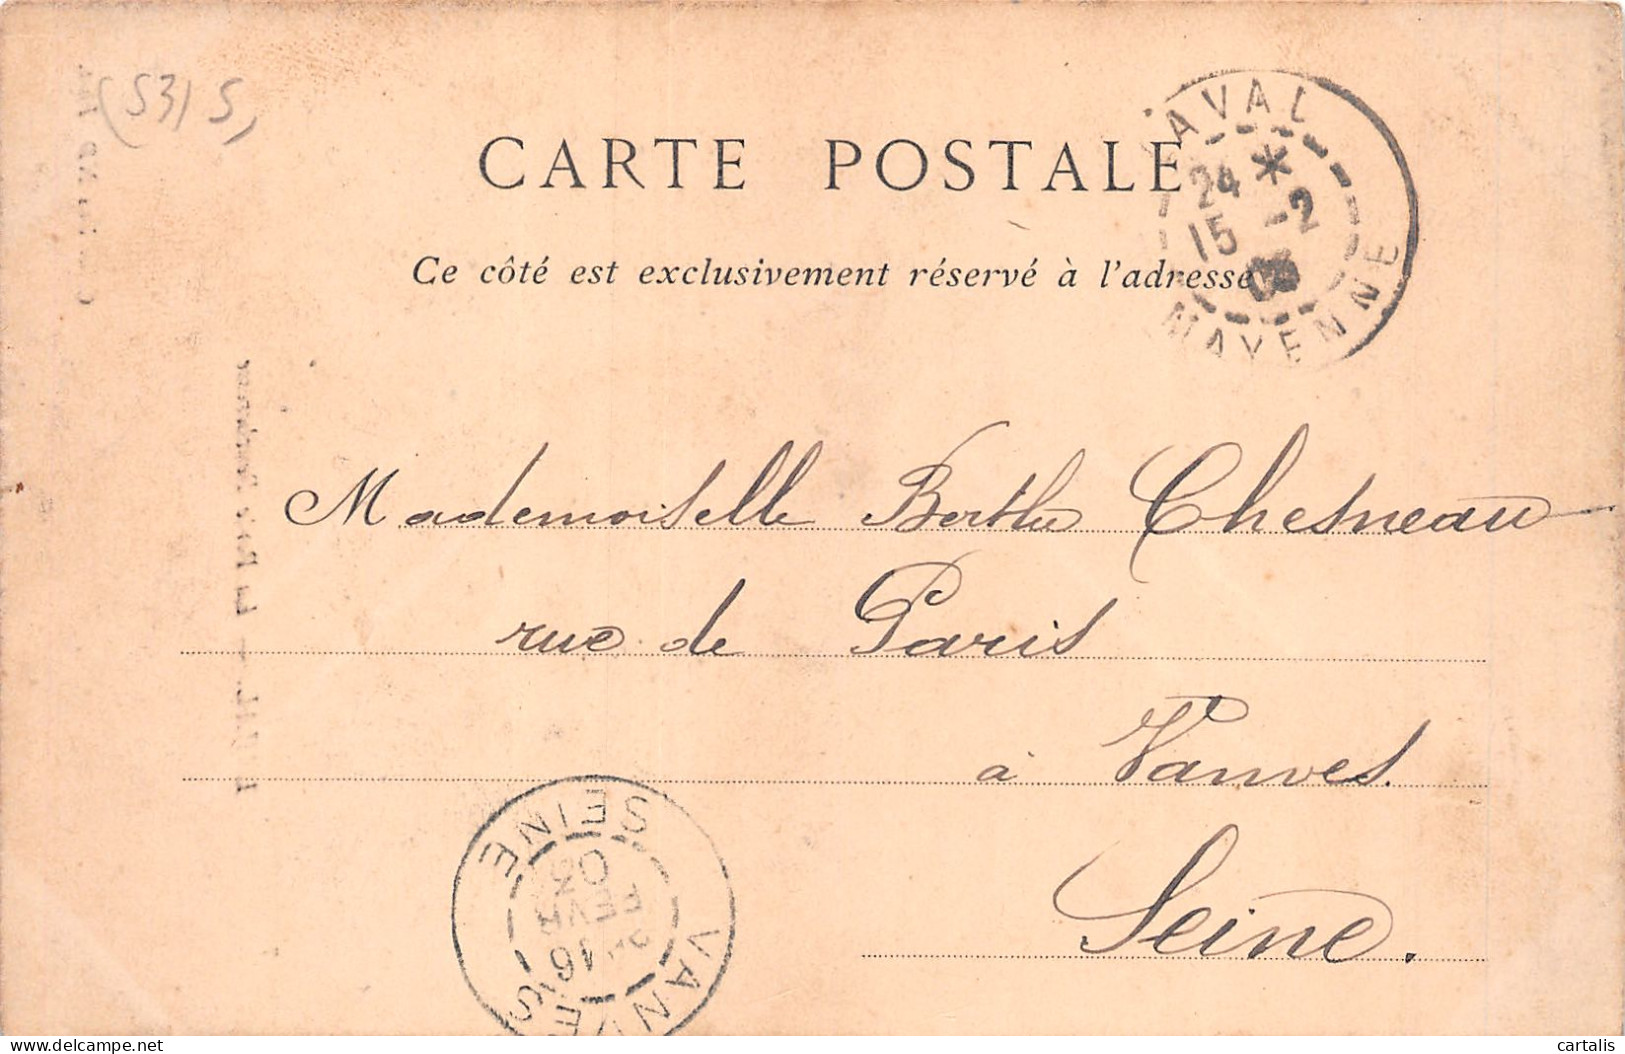 (53) 5,
CARTE POSTALE
Ce côté est exclusivement réservé à l'adresse
LAVAL
24 *
15 -2
03
MAYENNE
Mademoiselle Berthe Chesneau
rue de Paris
à Vanves.
Seine.
VANVES
16
FEVR
03
SEINE
delcampe.net
cartalis